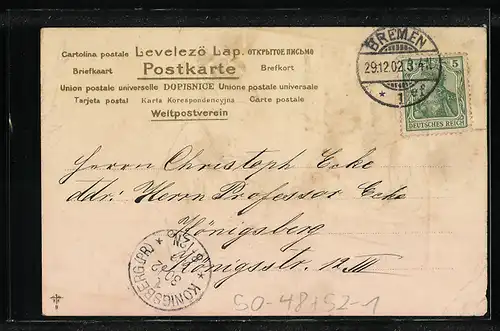 Cartolina postale Levelezö Lap. ОТКРЫТОЕ ПИСЬМО
Briefkaart Postkarte Brefkort
Union postale universelle DOPISNICE Unione postale universale
Tarjeta postal Karta Korespondencyjna Carte postale
Weltpostverein
BREMEN
29.12.02.3-4
* 1 *
5
DEUTSCHES REICH
Herrn Christoph Ecke
Herrn Professor Ecke
Königsberg
Königsstr. 12 III
KÖNIGSBERG (PR)
SO-48+52-1